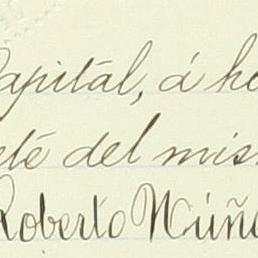 Capital, á ho
eté del mis
Roberto Núñe